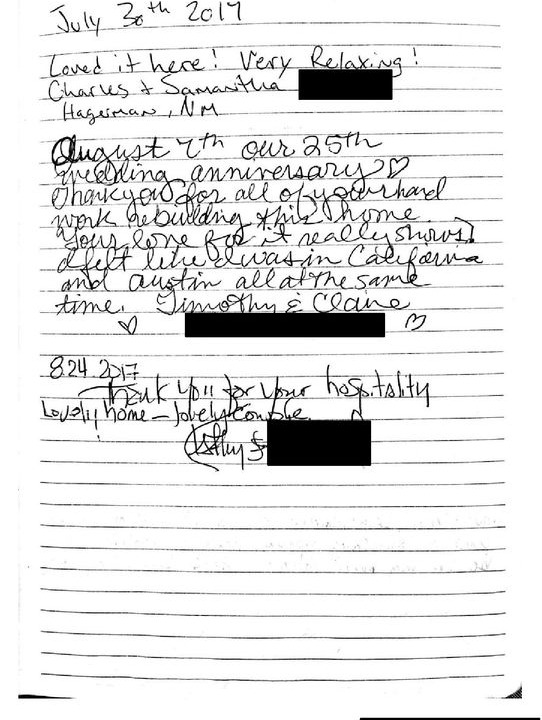 July 30th 2017
Loved it here! Very Relaxing!
Charles & Samantha
Hagerman, NM
August 7th our 25th
wedding anniversary ♡
Thankyou for all of your hard
work rebuilding this home.
Your love for it really shows!
I felt like I was in California
and Austin all at the same
time. Timothy & Claire
♡ ♡
8.24.2017
Thank you for your hospitality
Lovely home – lovely couple.
Kathy &